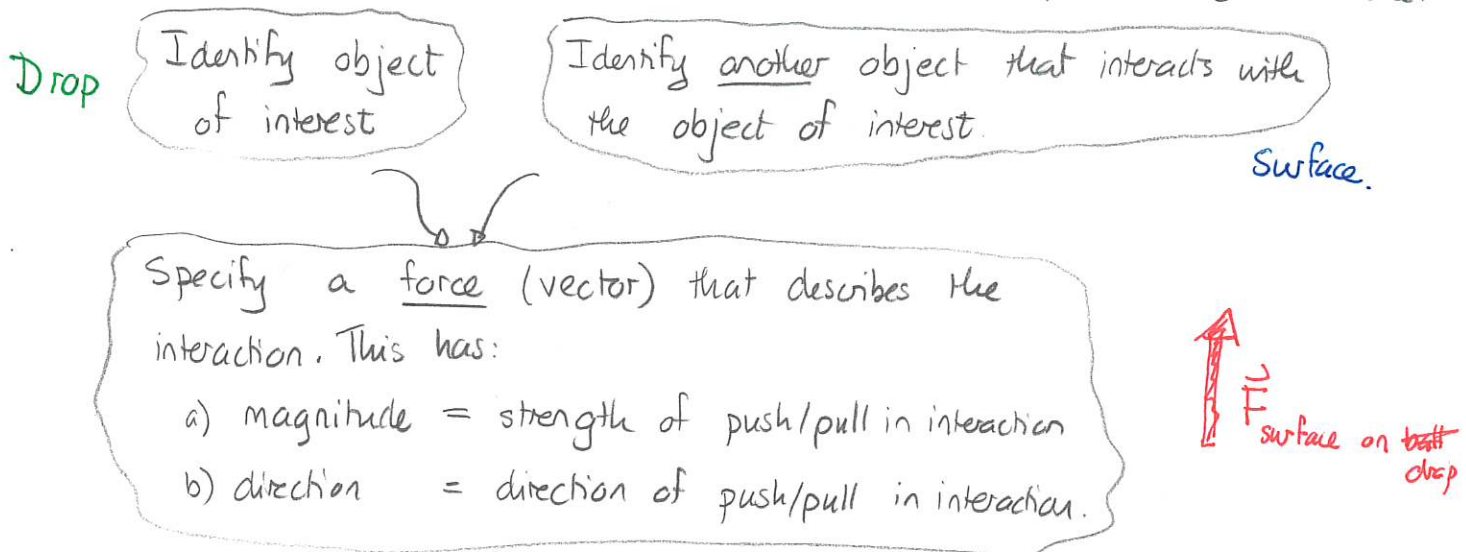 Drop
Identify object
of interest
Identify another object that interacts with
the object of interest.
Surface.
Specify a force (vector) that describes the
interaction. This has:
a) magnitude = strength of push/pull in interaction
b) direction = direction of push/pull in interaction.
F surface on ball
drop